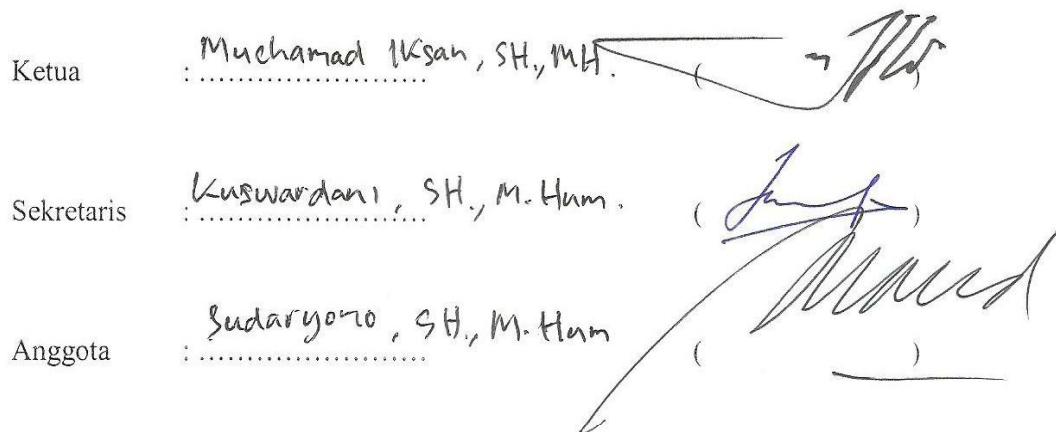 Ketua : Muchamad Iksan, SH., MH. ( )
Sekretaris : Kuswardani, SH., M. Hum. ( )
Anggota : Sudaryono, SH., M. Hum ( )